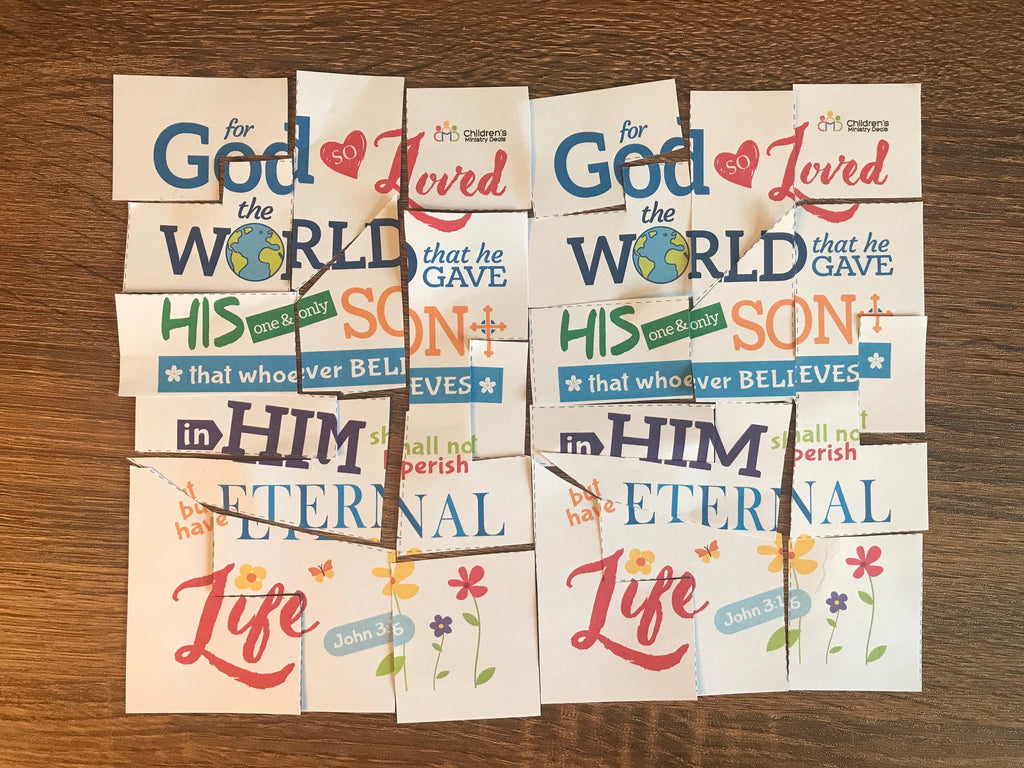 for
God SO Loved
Children's
Ministry Deals
the
WORLD that he
GAVE
HIS one & only SON
that whoever BELIEVES
in HIM shall not
perish
but
have ETERNAL
Life
John 3:16
for
God SO Loved
Children's
Ministry Deals
the
WORLD that he
GAVE
HIS one & only SON
that whoever BELIEVES
in HIM shall not
perish
but
have ETERNAL
Life
John 3:16